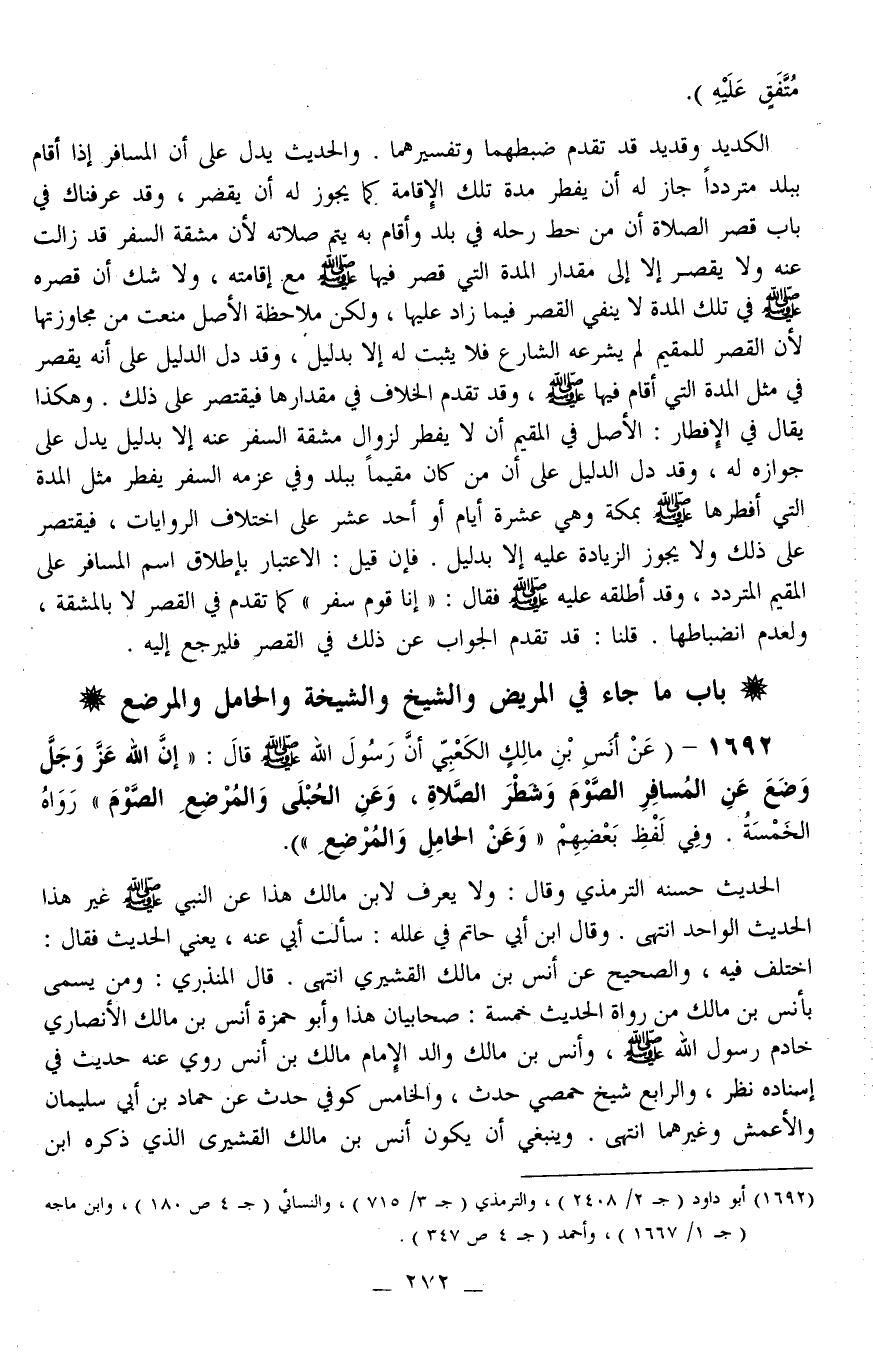 مُتَّفَقٍ عَلَيْهِ ).
الكديد وقديد قد تقدم ضبطهما وتفسيرهما . والحديث يدل على أن المسافر إذا أقام
ببلد متردداً جاز له أن يفطر مدة تلك الإقامة كما يجوز له أن يقضر ، وقد عرفناك في
باب قصر الصلاة أن من حط رحله في بلد وأقام به يتم صلاته لأن مشقة السفر قد زالت
عنه ولا يقصر إلا إلى مقدار المدة التي قصر فيها ﷺ مع إقامته ، ولا شك أن قصره
ﷺ في تلك المدة لا ينفي القصر فيما زاد عليها ، ولكن ملاحظة الأصل منعت من مجاوزتها
لأن القصر للمقيم لم يشرعه الشارع فلا يثبت له إلا بدليل ، وقد دل الدليل على أنه يقصر
في مثل المدة التي أقام فيها ﷺ ، وقد تقدم الخلاف في مقدارها فيقتصر على ذلك . وهكذا
يقال في الإفطار : الأصل في المقيم أن لا يفطر لزوال مشقة السفر عنه إلا بدليل يدل على
جوازه له ، وقد دل الدليل على أن من كان مقيماً ببلد وفي عزمه السفر يفطر مثل المدة
التي أفطرها ﷺ بمكة وهي عشرة أيام أو أحد عشر على اختلاف الروايات ، فيقتصر
على ذلك ولا يجوز الزيادة عليه إلا بدليل . فإن قيل : الاعتبار بإطلاق اسم المسافر على
المقيم المتردد ، وقد أطلقه عليه ﷺ فقال : « إنا قوم سفر » كما تقدم في القصر لا بالمشقة ،
ولعدم انضباطها . قلنا : قد تقدم الجواب عن ذلك في القصر فليرجع إليه .
✹ باب ما جاء في المريض والشيخ والشيخة والحامل والمرضع ✹
١٦٩٢ - ( عَنْ أنَسِ بْنِ مالِكٍ الكَعْبِيّ أنَّ رَسُولَ الله ﷺ قالَ : « إنَّ الله عَزَّ وَجَلَّ
وَضَعَ عَنِ المُسافِرِ الصَّوْمَ وَشَطْرَ الصَّلاةِ ، وَعَنِ الحُبْلَى وَالمُرْضِعِ الصَّوْمَ » رَوَاهُ
الخَمْسَةُ . وفِي لَفْظِ بَعْضِهِمْ « وَعَنْ الحامِلِ وَالمُرْضِعِ »).
الحديث حسنه الترمذي وقال : ولا يعرف لابن مالك هذا عن النبي ﷺ غير هذا
الحديث الواحد انتهى . وقال ابن أبي حاتم في علله : سألت أبي عنه ، يعني الحديث فقال :
اختلف فيه ، والصحيح عن أنس بن مالك القشيري انتهى . قال المنذري : ومن يسمى
بأنس بن مالك من رواة الحديث خمسة : صحابيان هذا وأبو حمزة أنس بن مالك الأنصاري
خادم رسول الله ﷺ ، وأنس بن مالك والد الإمام مالك بن أنس روي عنه حديث في
إسناده نظر ، والرابع شيخ حمصي حدث ، والخامس كوفي حدث عن حماد بن أبي سليمان
والأعمش وغيرهما انتهى . وينبغي أن يكون أنس بن مالك القشيرى الذي ذكره ابن
(١٦٩٢) أبو داود ( جـ ٢/ ٢٤٠٨ ) ، والترمذي ( جـ ٣/ ٧١٥ ) ، والنسائي ( جـ ٤ ص ١٨٠ ) ، وابن ماجه
( جـ ١/ ١٦٦٧ ) ، وأحمد ( جـ ٤ ص ٣٤٧ ) .
_ ٢٧٢ _